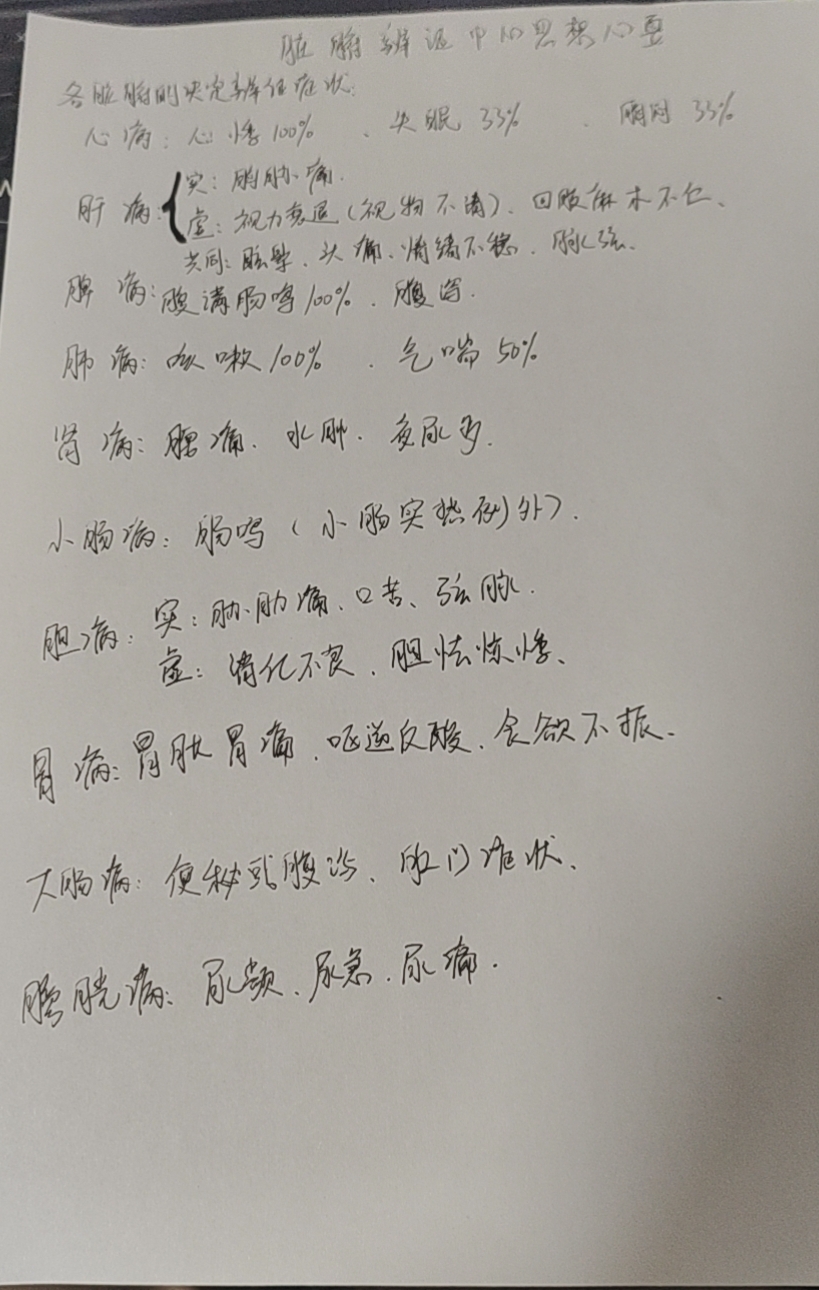 脏腑辨证中的思想心要
各脏腑的决定辨征症状:
心病: 心悸100%、失眠33%、胸闷33%
肝病: 实: 胸胁痛.
虚: 视力衰退(视物不清)、四肢麻木不仁、
共同: 眩晕、头痛、情绪不稳、脉弦.
脾病: 腹满肠鸣100%、腹泻.
肺病: 咳嗽100%、气喘50%
肾病: 腰痛、水肿、夜尿多.
小肠病: 肠鸣(小肠实热例外).
胆病: 实: 胁肋痛、口苦、弦脉.
虚: 消化不良、胆怯惊悸、
胃病: 胃脘胃痛、呕逆反酸、食欲不振.
大肠病: 便秘或腹泻、肛门症状、
膀胱病: 尿频、尿急、尿痛.